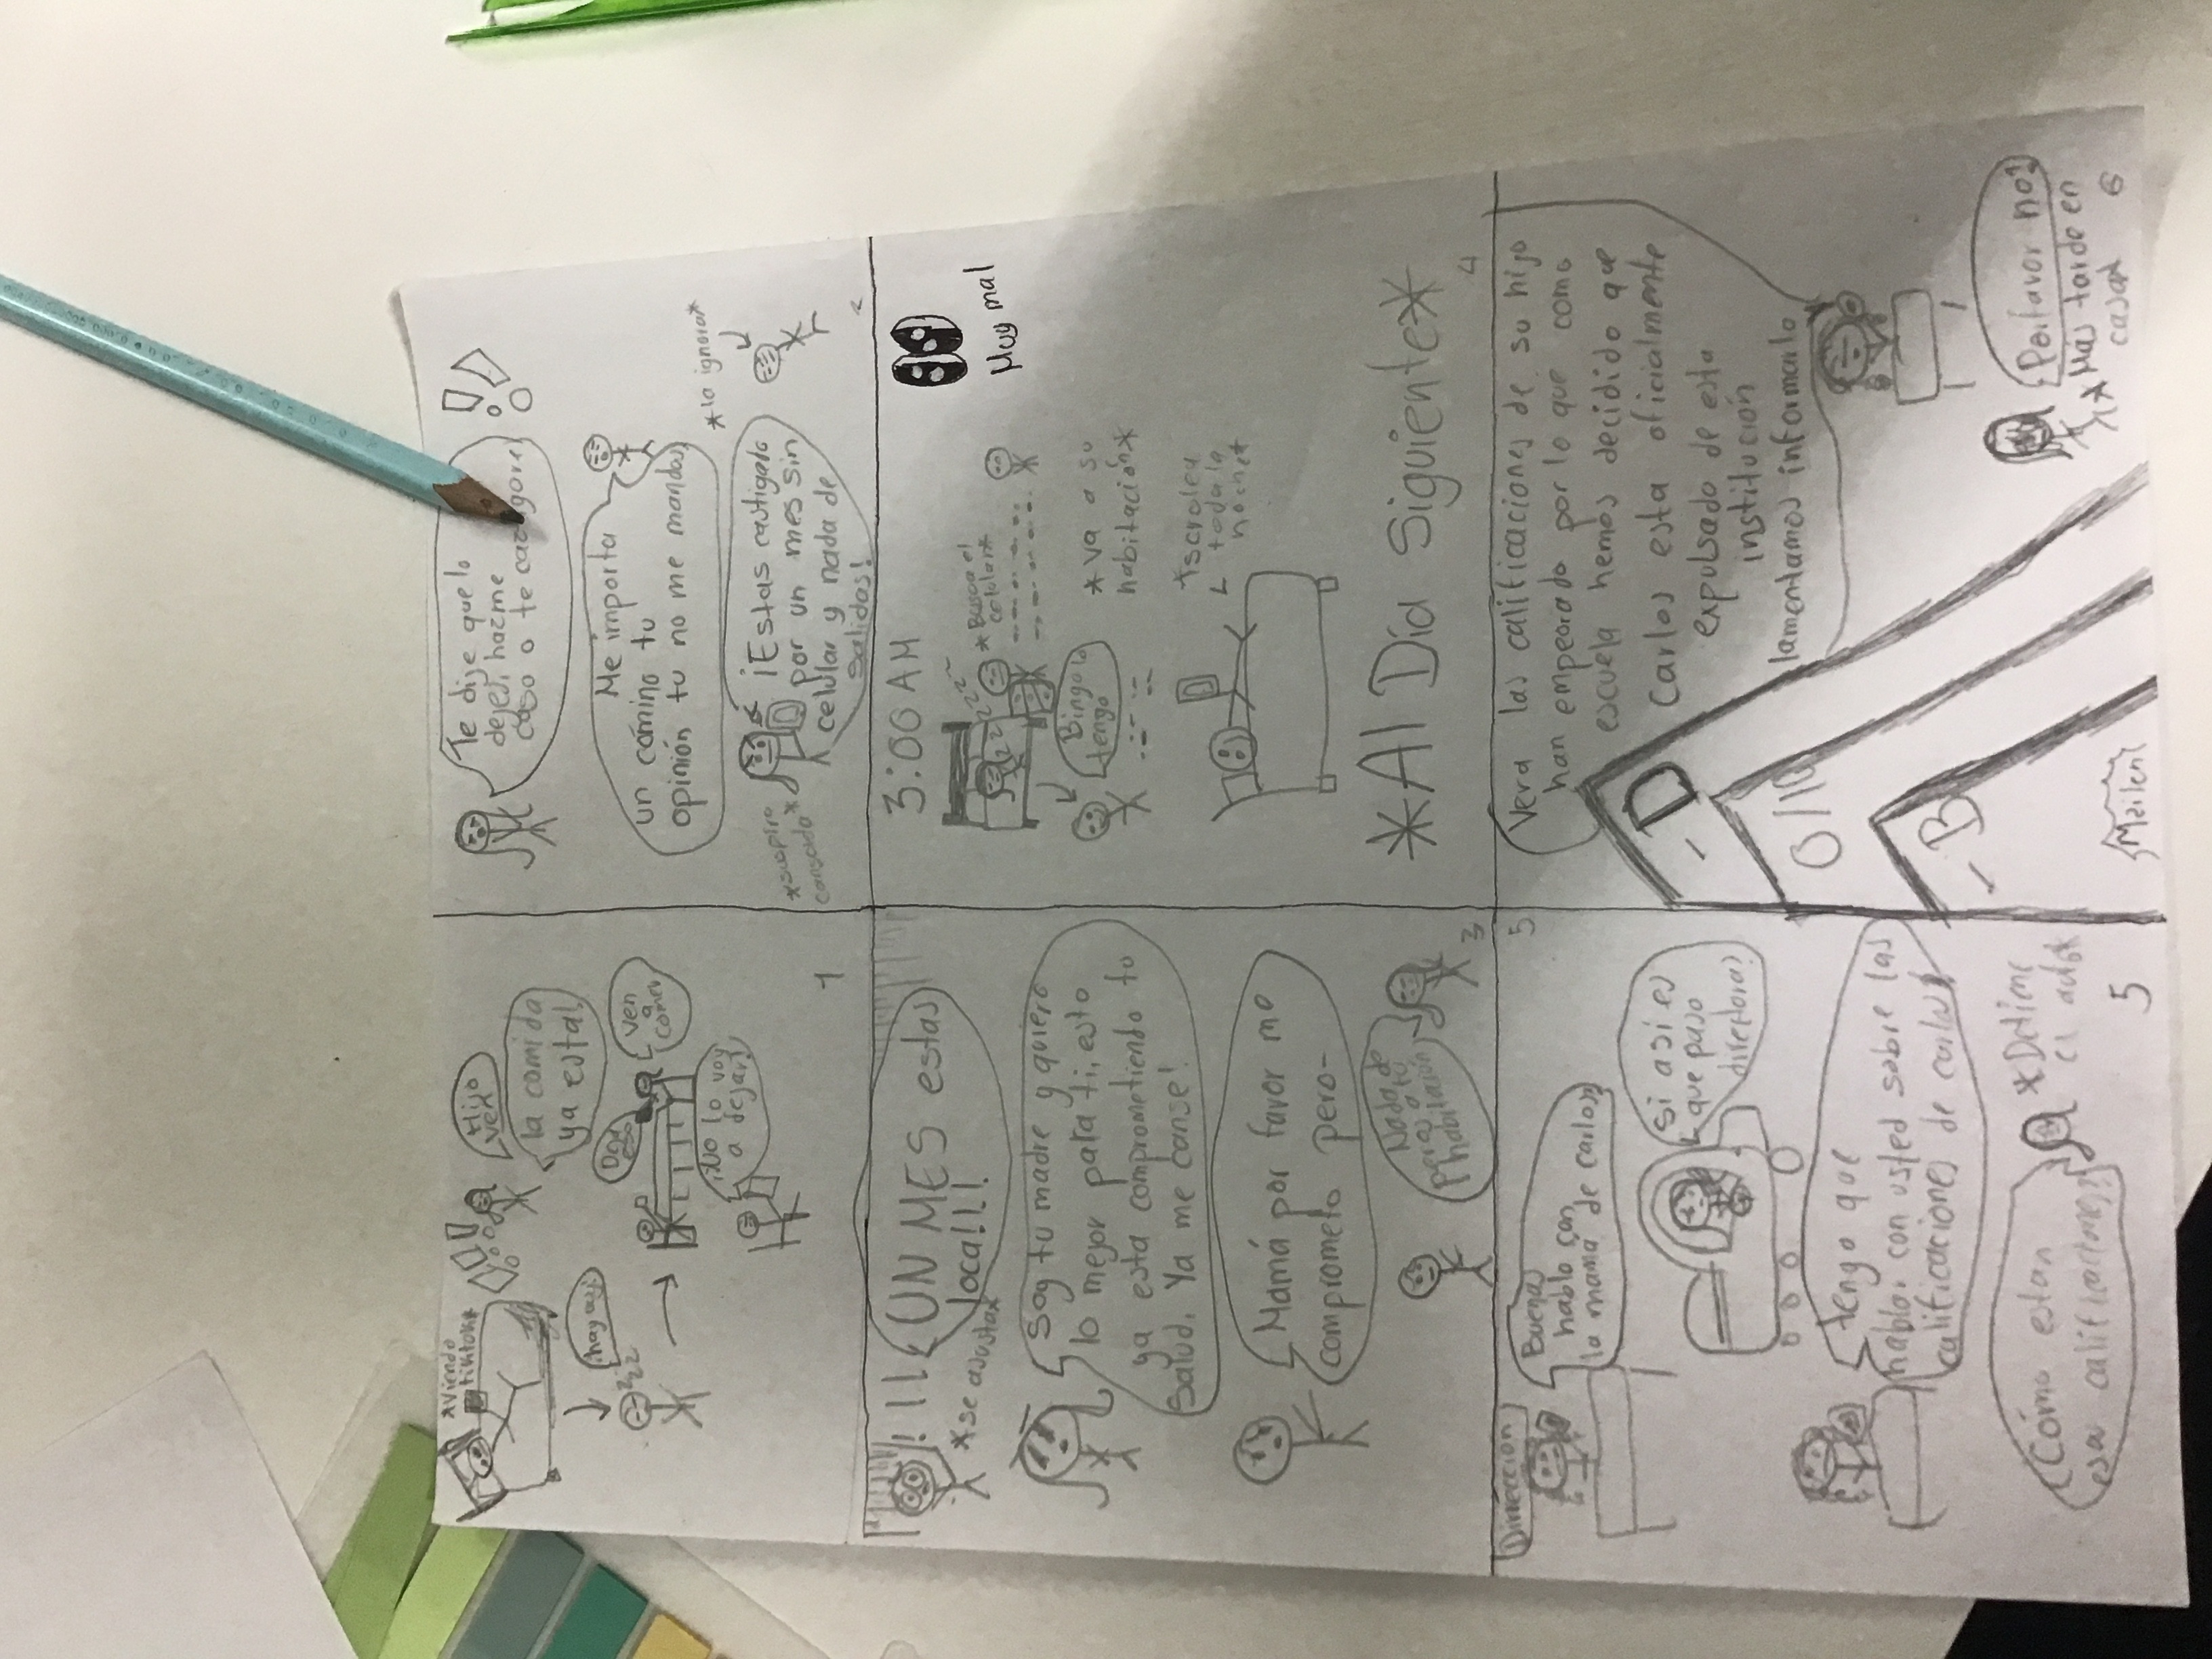 *Viendo
tiktok*
Hijo
ven
la comida
ya esta!
¡hay aaj!
Deja
eso
ven
a
comer
¡No lo voy
a dejar!
1
Te dije que lo
dejes hazme
caso o te
Me importa
un comino tu
opinión tu no me mandas
*suspiro
cansado*
¡Estas castigado
por un mes sin
celular y nada de
salidas!
*la ignora*
2
¡UN MES estas
loca!!!
*se asusta*
Soy tu madre y quiero
lo mejor para ti, esto
ya esta comprometiendo tu
Salud. Ya me canse!
Mamá por favor me
comprometo pero-
Nada de
peros a tu
habitación
3
3:00 AM
Muy mal
*Busca el
celular*
zzz
Bingo lo
tengo
*va a su
habitación*
*scrolea
toda la
noche*
*Al Día Siguiente*
4
Dirreccion
Buenas
hablo con
la mama de carlos
Si asi es
que paso
directora?
tengo que
hablar con usted sobre las
calificaciones de carlos
Cómo estan
esas calificaciones??
*Detiene
el auto*
5
5
Vera las calificaciones de su hijo
han empeorado por lo que como
escuela hemos decidido que
Carlos esta oficialmente
expulsado de esta
institución
lamentamos informarlo
-D
0/10
-B
Maileni
¡Porfavor no!
*Más tarde en
casa*
6